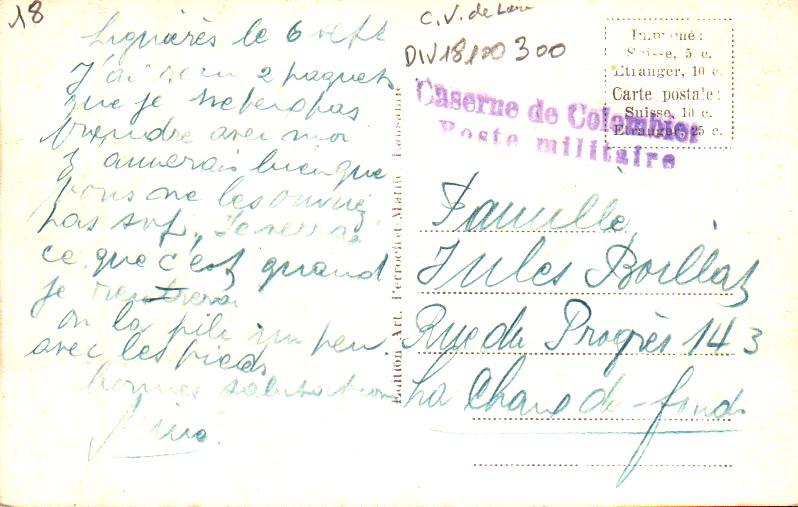 18
C.V. de
DIV 18,100 300
Lignières le 6 sept
J'ai 2 paquets
que je
prendre avec moi
J aimerais bien que
vous ne les ouvriez
pas svp,
ce que c'est quand
je
on la pile un peu
avec les pieds
bonnes salutations
Imprimé:
Suisse, 5 c.
Etranger, 10 c.
Carte postale:
Suisse, 10 c.
Etranger, 25 c.
Caserne de Colombier
Poste militaire
Edition Art. Perrochet-Matile Lausanne
Famille,
Jules Boillat
Rue du Progrès 143
La Chaux-de-fonds